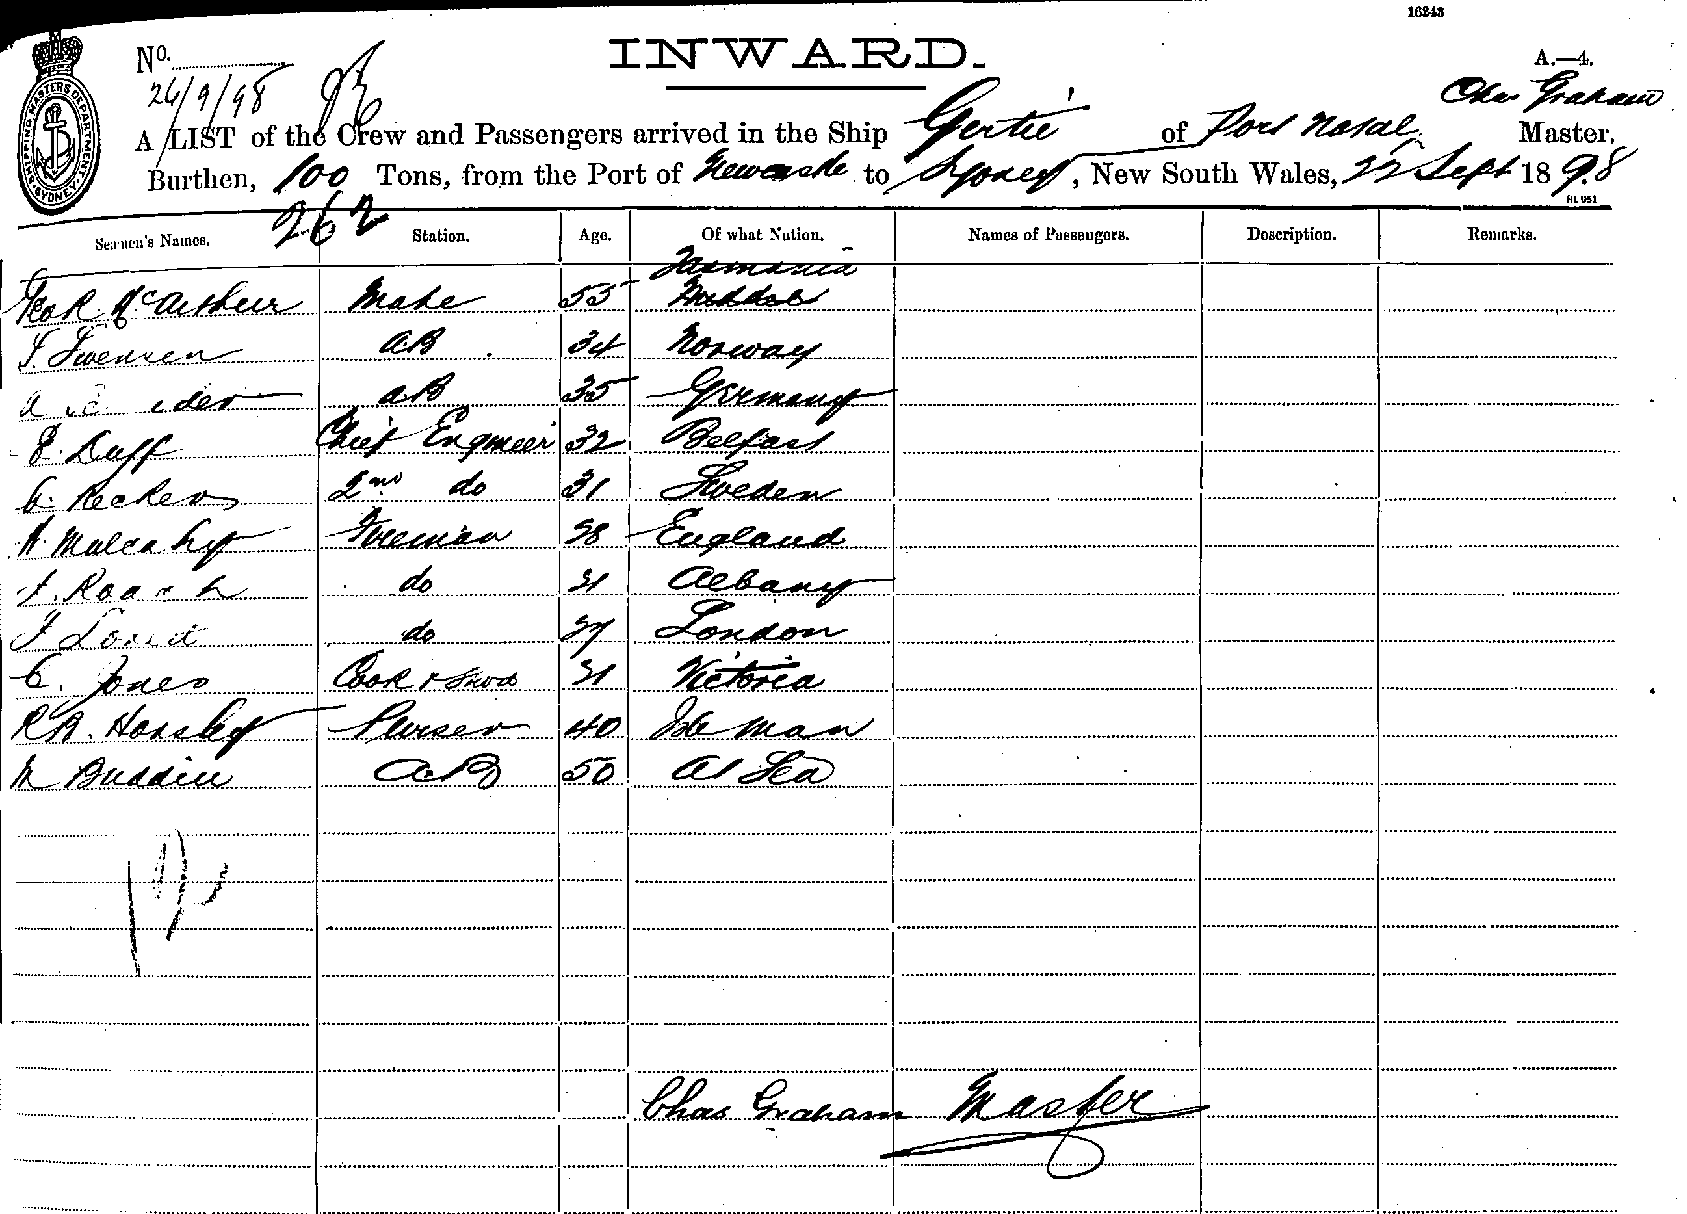 16243
No.
INWARD.
A.—4.
26/9/98
Chas Graham
A LIST of the Crew and Passengers arrived in the Ship Gertie of Port Natal, Master,
Burthen, 100 Tons, from the Port of Newcastle to Sydney, New South Wales, 22 Sept 1898
262
Seamen's Names. Station. Age. Of what Nation. Names of Passengers. Description. Remarks.
Tasmania
Geo R McArthur Mate 55
Swensen AB 34 Norway
AB 35 Germany
Duff Chief Engineer 32 Belfast
2nd do 31 Sweden
Mulcahy Fireman 38 England
Roach do 31 Albany
do London
C. Jones Cook & Stwd 31 Victoria
Horsley Purser 40 Isle Man
M AB 50 At Sea
Chas Graham Master
SHIPPING MASTERS DEPARTMENT SYDNEY